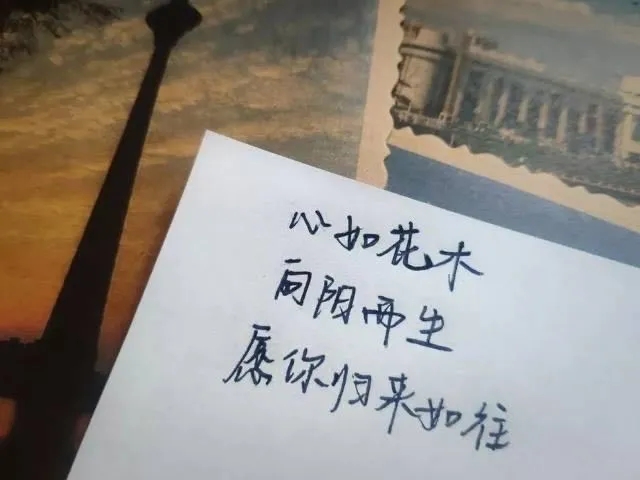 心如花木
向阳而生
愿你归来如往